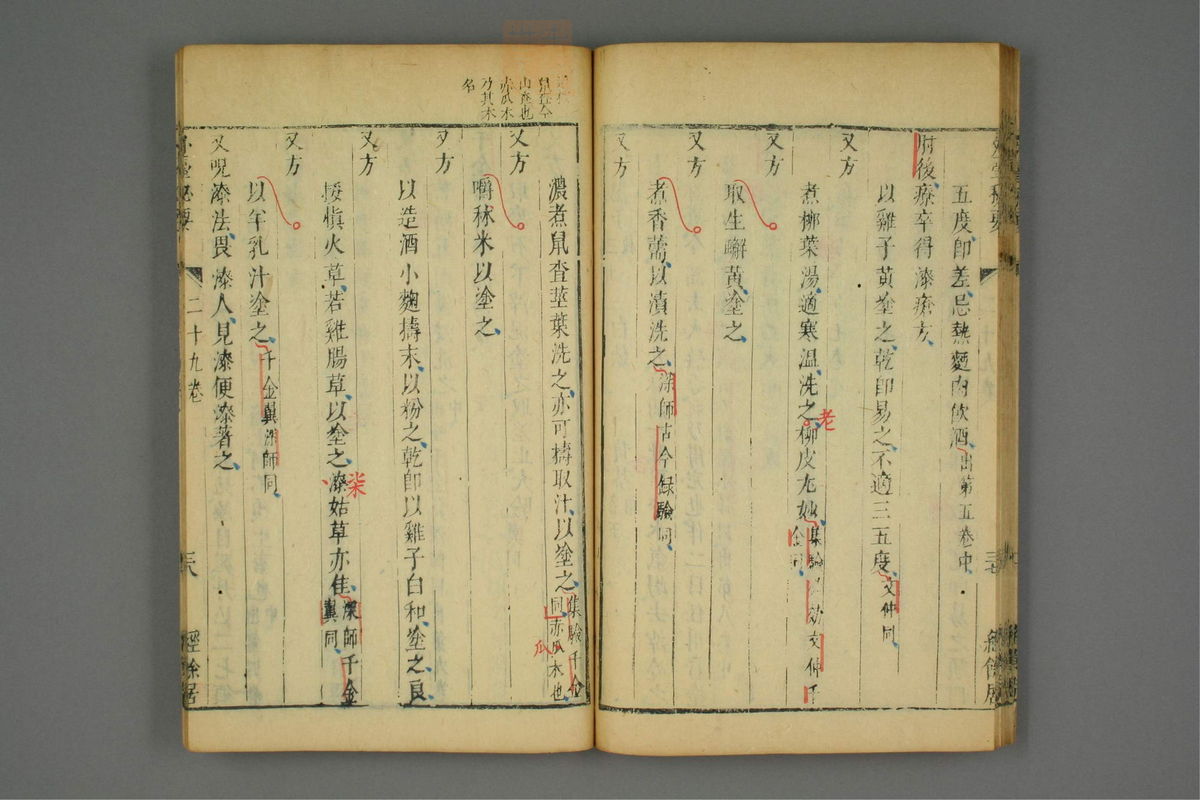 五度即差忌熱麵肉飲酒出第五卷中
肘後療卒得漆瘡方
以雞子黃塗之乾即易之不適三五度文仲同
煮柳葉湯適寒温洗之柳皮尤妙集驗
老
又方
取生蠏黃塗之
又方
煮香薷以漬洗之深師古今録驗同
又方
又方
濃煮鼠查莖葉洗之亦可擣取汁以塗之集驗千金同赤瓜木也
瓜
鼠查今
山查也
赤瓜木
乃其木
名
又方
嚼秫米以塗之
又方
以造酒小麴擣末以粉之乾即以雞子白和塗之良
又方
挼慎火草若雞腸草以塗之漆姑草亦佳深師千金翼同
柒
又方
以羊乳汁塗之千金翼深師同
又呪漆法畏漆人見漆便漆著之
二十九卷
三六
經餘居